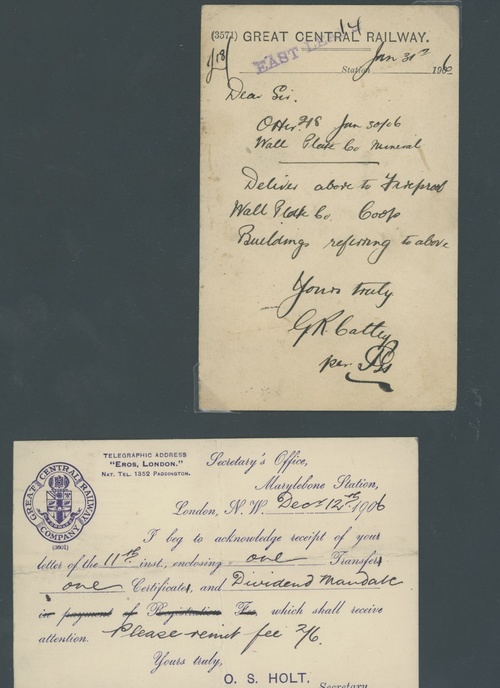 (3571) GREAT CENTRAL RAILWAY.
EAST 14
Jan 31st
Station 1906
Dear Sir.
Jan 30/06
Wall Plate Co Mineral
Deliver above to Fireproof
Wall Plate Co. Coop
Buildings referring to above
Yours truly
G R Cattey
per
TELEGRAPHIC ADDRESS
"EROS, LONDON."
NAT. TEL. 1352 PADDINGTON.
GREAT CENTRAL RAILWAY COMPANY
(3601)
Secretary's Office,
Marylebone Station,
London, N.W. Decr 12th 1906
I beg to acknowledge receipt of your
letter of the 11th inst., enclosing one Transfer
one Certificate, and Dividend Mandate
in payment of Registration Fee, which shall receive
attention. Please remit fee 2/6.
Yours truly,
O. S. HOLT,
Secretary